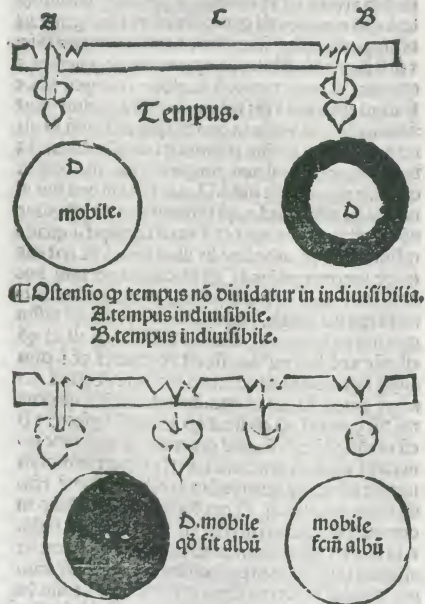 A C B
Tempus.
D D
mobile.
¶ Ostensio ꝙ tempus nō diuidatur in indiuisibilia.
A.tempus indiuisibile.
B.tempus indiuisibile.
D.mobile mobile
qð fit albū fcm̄ albū